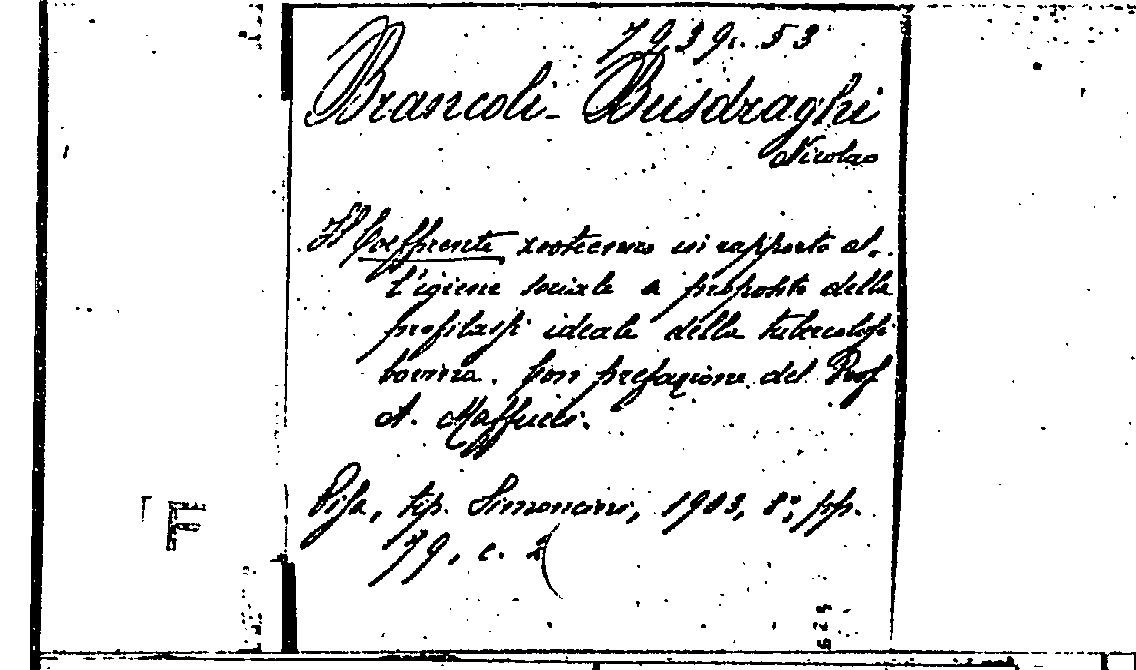 7939. 53
Brancoli-Busdraghi
Nicolao
Il Coefficente zootecnico in rapporto al-
l'igiene sociale a proposito della
profilassi ideale della tubercolosi
bovina. Con prefazione del Prof
A. Maffucci.
Pisa, tip. Simoncini, 1903, 8°, pp.
79, c. 2
F